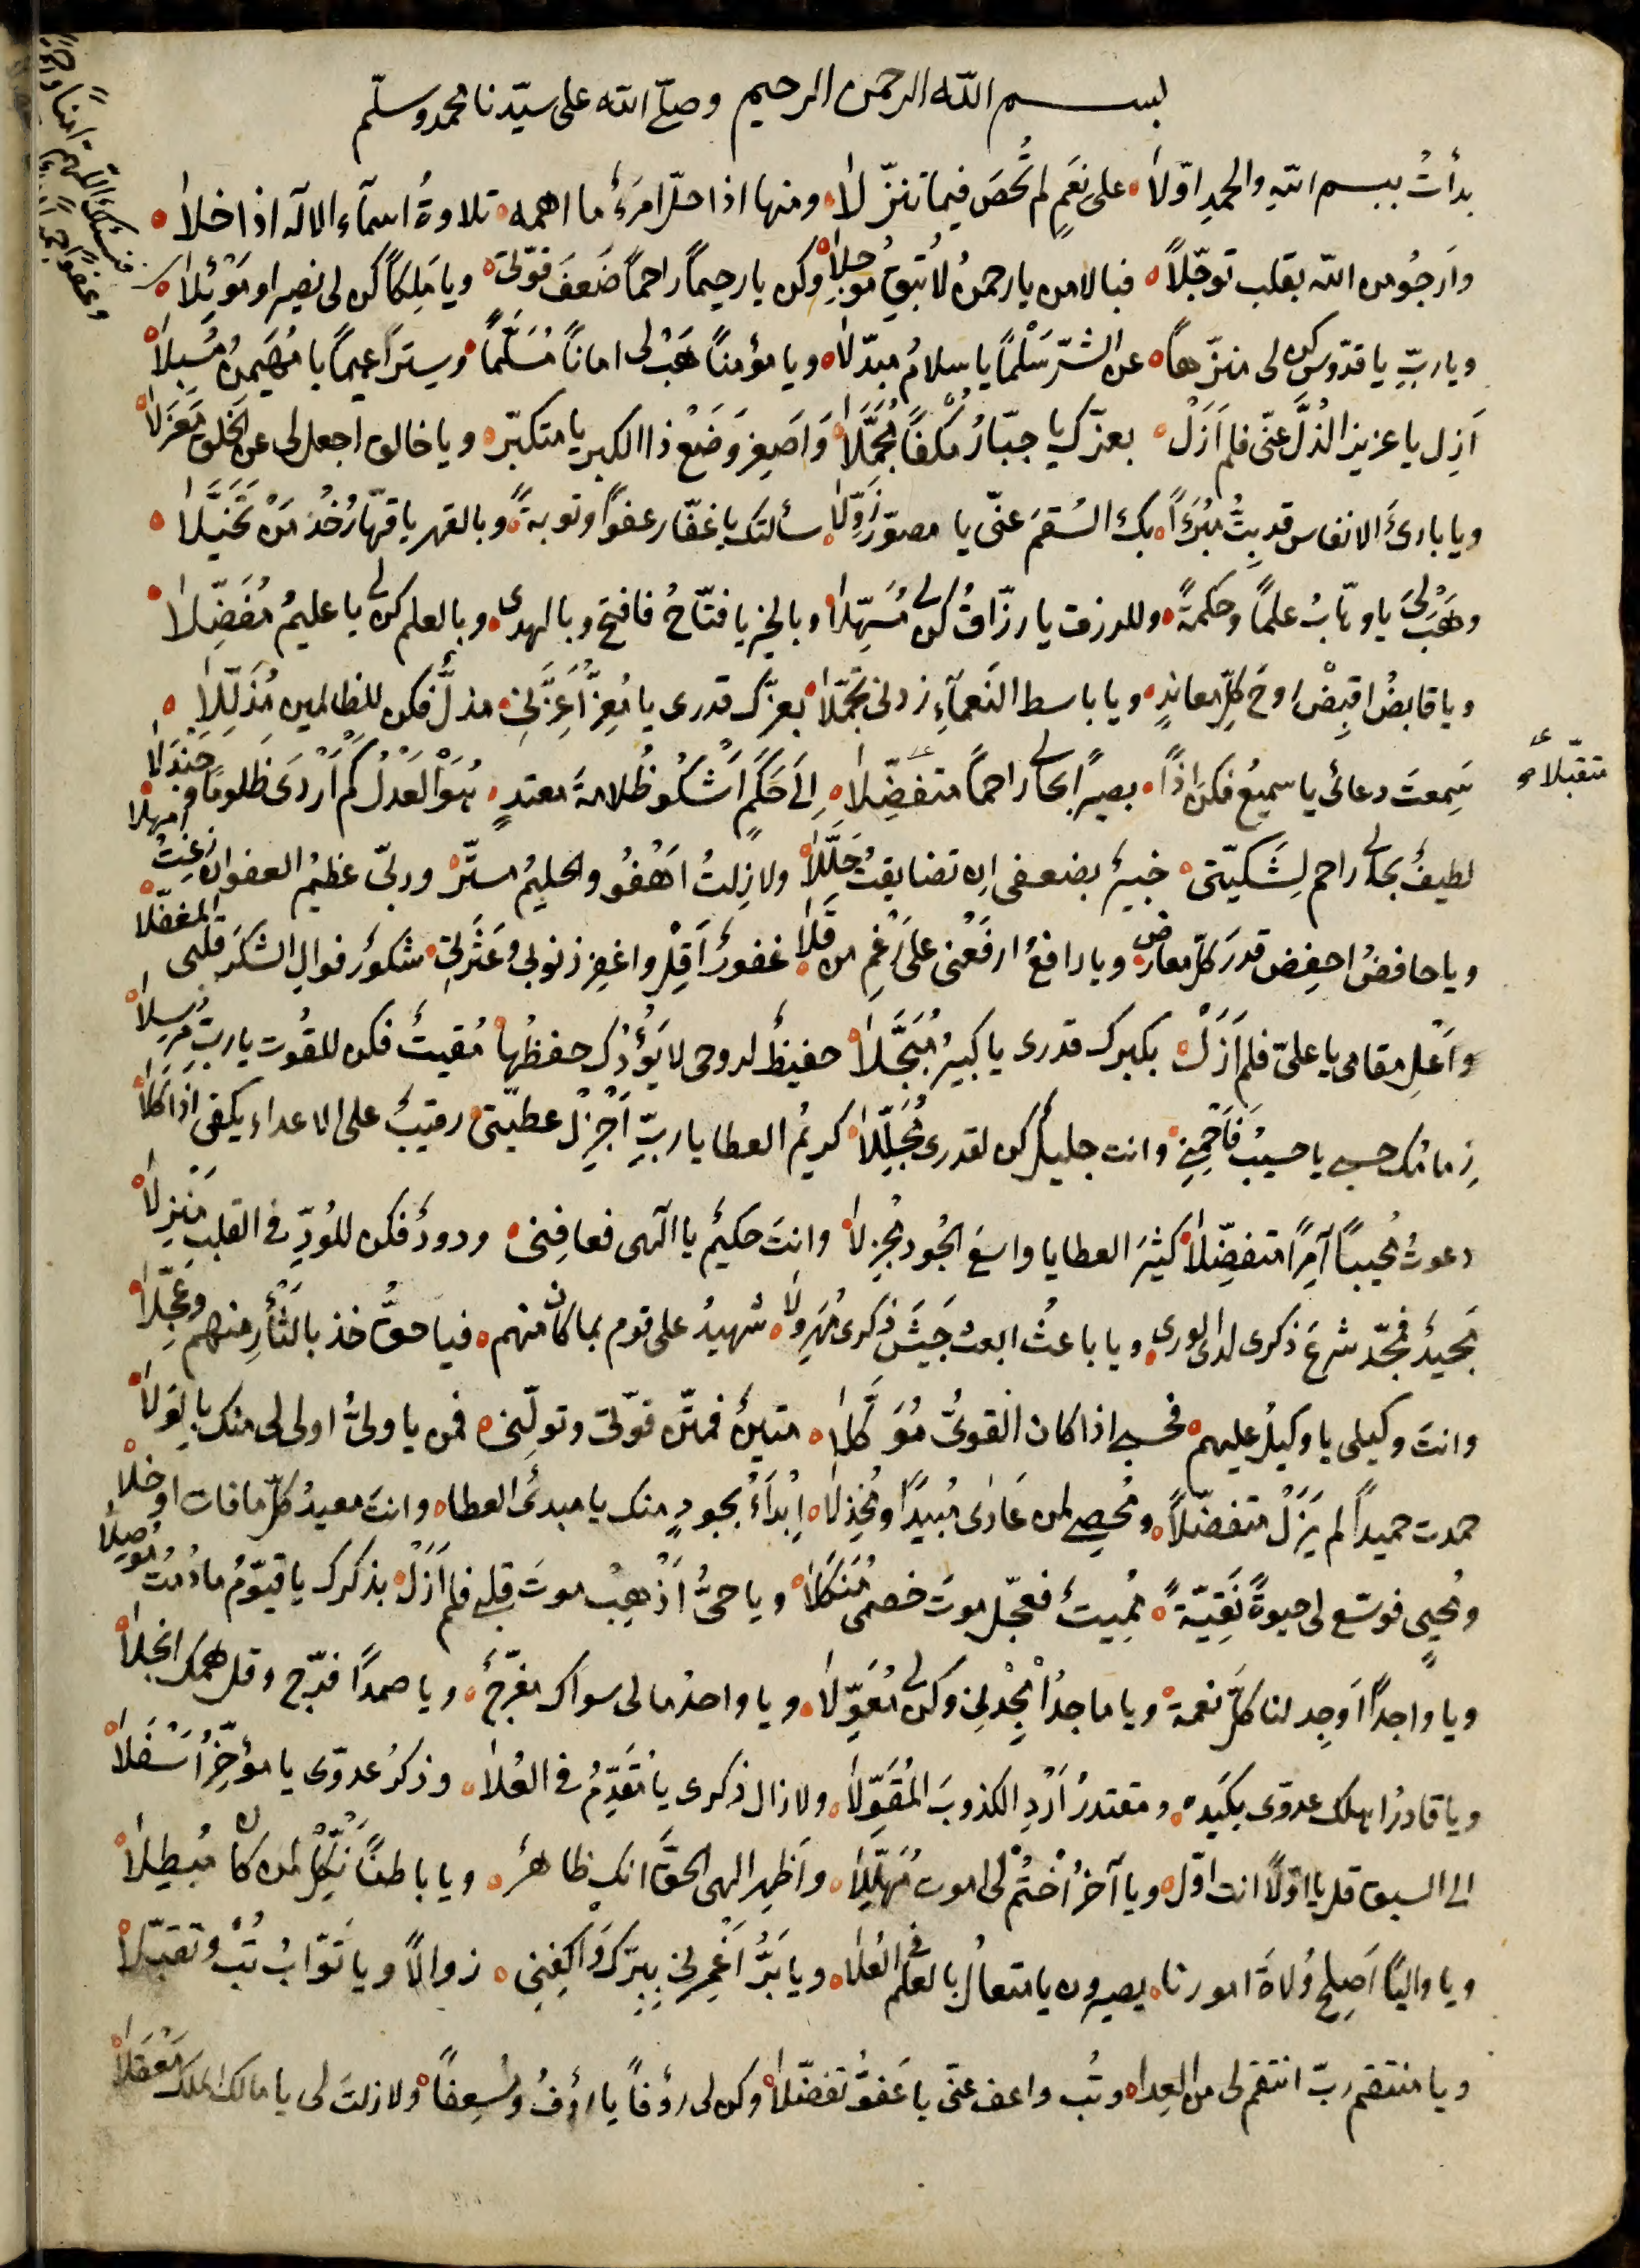 بسم الله الرحمن الرحيم وصلّى الله على سيّدنا محمد وسلّم
بدأتُ ببسم اللهِ والحمدِ اوّلاً على نعَمٍ لم تُحصَ فيما تنزّلا ومنها اذا حلّ امرءٌ ما اهمه تلاوةُ اسمآء الاله اذا خلا
وارجُو من الله بقلب توجّلاً فبالامن يا رحمنُ لا تُبقِ مُوجلا وكن يا رحيماً راحماً ضَعفَ قوّتى ويا مَلِكاً كن لى نصيرا ومَوئِلا
ويا ربِّ يا قدّوس كن لى منزّهاً عن الشرّ سَلْماً يا سلامُ مبدّلا ويا مؤمناً هَبْ لى اماناً مُسَلَّماً وستراً عميماً يا مُهَيمنُ مُسبِلا
اَزِل يا عزيز الذُلَّ عنّى فلم اَزَلْ بعزّك يا جبّارُ مُجَمَّلاً وَاَصغِر وَضَعْ ذا الكبر يا متكبّر ويا خالق اجعل لى عن الخلق مَعزَلا
ويا بارئَ الانفاس قد بِتُّ مُبرَءاً بك السُقمَ عنّى يا مصوّر زَوِّلا سألتك يا غفّار عفواً وتوبةً وبالقهر يا قهّارُ خُذ مَنْ تَحَيَّلا
وهَبْ لى يا وهّابُ علماً وحكمةً وللرزق يا رزّاقُ كن لى مُسَهِّلا وبالخير يا فتّاحُ فافتح وبالهدى وبالعلم كن لى يا عليمُ مُفَضِّلا
ويا قابضُ اقبِضْ روحَ كلِّ معاندٍ ويا باسط النَعمآءِ زدنى تجمّلا بعزّك قدرى يا مُعِزُّ اَعِزَّنى مذلٌّ فكن للظالمين مُذَلِّلا
سَمِعتَ دعائى يا سميعُ فكن اذاً بصيراً بحالى راحماً متفضِّلا اِلَى حَكَمٍ اَشكُو ظُلامةَ معتدٍ هُوَ العَدلُ كم اَردَى ظلوماً وجَندَلا
متقبّلا
لطيفٌ بحالى راحم لِشَكيّتى خبيرٌ بضعفى ان تضايقتُ حَلَّلا ولا زِلتُ اَهْفُو والحليمُ مستّر وربّى عظيمُ العفو ان زغتُ امهلا
ويا خافضُ اخفِض قدرَ كلّ معارض ويا رافعُ ارفَعْنى على رَغمِ من قَلا غفورٌ اَقِل واغفِر ذنوبى وعَثرَتى شكورٌ فوالِ الشكرَ قلبى المغفّلا
واَعْلِ مقامى يا علىّ فلم اَزَلْ بكبرك قدرى يا كبيرُ مُبَجَّلا حفيظٌ لروحى لا يَؤُدْك حفظُها مُقيتٌ فكن للقُوت يا ربّ مُرسلا
زمانُك حسبى يا حسيبُ فَاحمِنى وانت جليلٌ كن لقدرى مُجَلِّلا كريمُ العطا يا ربِّ اَجْزِلْ عطيّتى رقيبٌ على الاعداء يكفى اذا كَلا
دعوتُ مُجيباً آمِراً متفضِّلا كثيرَ العطايا واسعَ الجُود مُجزلا وانتَ حكيمٌ يا الهى فعافِنى ودودٌ فكن للوُدِّ فى القلب مُنزِلا
مَجيدٌ فمجّد شرعَ ذكرى لدى الورى ويا باعثُ ابعث جَيشَ ذكرى مُهَرولا شهيدٌ على قوم بما كان منهم فيا حقُّ خذ بالثأرِ منهم وعجِّلا
وانتَ وكيلى يا وكيلُ عليهم فحسبى اذا كان القوىُّ مُوَكَّلا متينٌ فمتّن قوّتى وتولّنى فمن يا ولىُّ اولى لى منك بالوَلا
حمدت حميداً لم يَزَلْ متفضّلاً ومُحصى لمن عَادَى مُبيداً ومُخذِلا اِبْدَاءُ بجودٍ منك يا مبدئَ العطا وانتَ معيدُ كلّ ما فات او خلا
ومُحيى فوسّع لى حيوةً نَقِيّةً مُميتٌ فعجّل موتَ خصمى مُنَكَلا ويا حىُّ اَذْهِبْ موتَ قلبى فلم اَزَلْ بذكرك يا قيّومُ ما دُمتُ مُوصِلا
ويا واجداً اَوجِد لنا كلَّ نعمة ويا ماجدُ اَمجِدْنى وكن لى مُعَوِّلا ويا واحدُ ما لى سواك مفرّجٌ ويا صمداً فرّج وقل همّك انجلا
ويا قادرُ اهلك عدوّى بكَيده ومقتدرُ اَرْدِ الكذوبَ المُقَوّلا ولا زال ذكرى يا مُقدِّمُ فى العُلا وذكرُ عدوّى يا مؤخّرُ اَسْفَلا
الى السبق قل يا اوّلاً انت اوّل ويا آخرُ اخْتُمْ لى اموت مُهَلِّلا واَظهِر الهى الحقَّ انك ظاهرٌ ويا باطناً نكِّلْ لمن كان مُبطِلا
ويا والياً اَصلِح وُلاةَ امورنا يصيرون يا متعالُ بالعلم فى العُلا ويا بَرُّ اغمِرنى ببِرّك وَاكفِنى زوالاً ويا توّابُ تُبْ وتقبّلا
ويا منتقم ربّ انتقم لى من العِدا وتُب واعف عنّى يا عَفوُّ تفضّلا وكن لى رؤفاً يا رؤفُ ومُسعِفاً ولا زلتَ لى يا مالكَ الملك مَعقلا